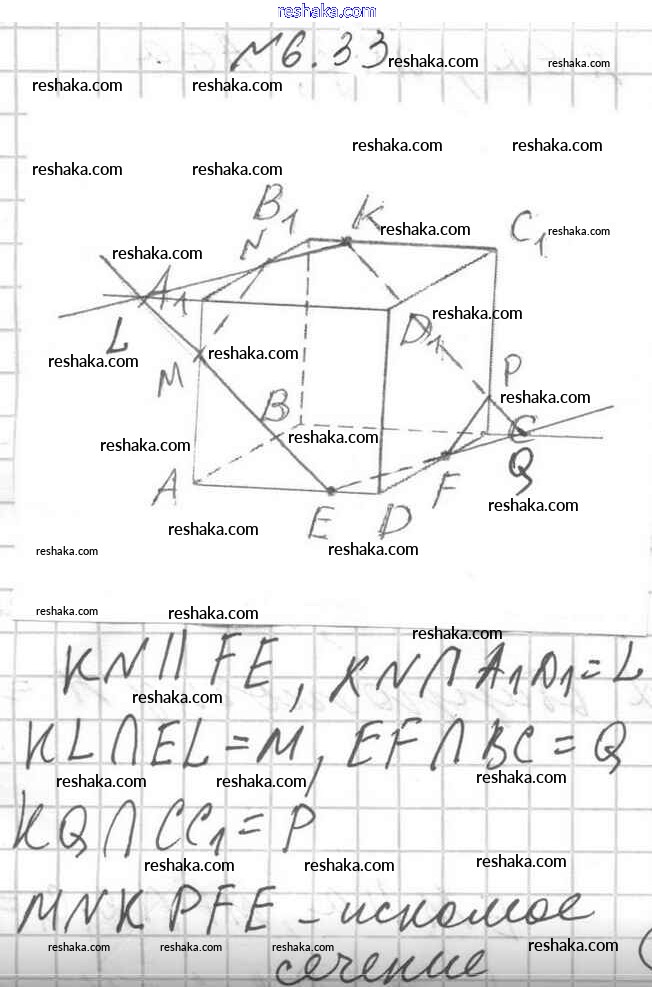 reshaka.com
№6.33 reshaka.com reshaka.com
reshaka.com reshaka.com
reshaka.com reshaka.com
reshaka.com reshaka.com
B₁ K reshaka.com C₁ reshaka.com
reshaka.com N
A₁
reshaka.com
L D₁
reshaka.com M reshaka.com P
reshaka.com
B reshaka.com C
reshaka.com
A F Q
reshaka.com
E D
reshaka.com
reshaka.com reshaka.com
reshaka.com reshaka.com
reshaka.com
KN || FE, KN ∩ A₁D₁ = L
reshaka.com
KL ∩ EL = M, EF ∩ BC = Q
reshaka.com reshaka.com reshaka.com
KQ ∩ CC₁ = P
reshaka.com reshaka.com reshaka.com
MNKPFE – искомое
reshaka.com reshaka.com reshaka.com reshaka.com
сечение